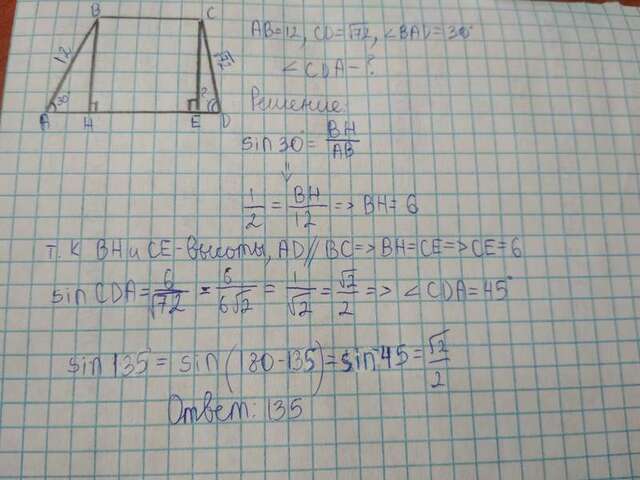 B C
12 √72
30° ?
A H E D
AB=12, CD=√72, ∠BAD=30°
∠CDA-?
Решение
sin30°= BH/AB
⇓
1/2 = BH/12 => BH= 6
т.к BH и CE-высоты, AD//BC=>BH=CE=>CE=6
sin CDA= 6/√72 = 6/6√2 = 1/√2 = √2/2 => ∠CDA=45°
sin 135° = sin(180-135)=sin 45 = √2/2
Ответ: 135